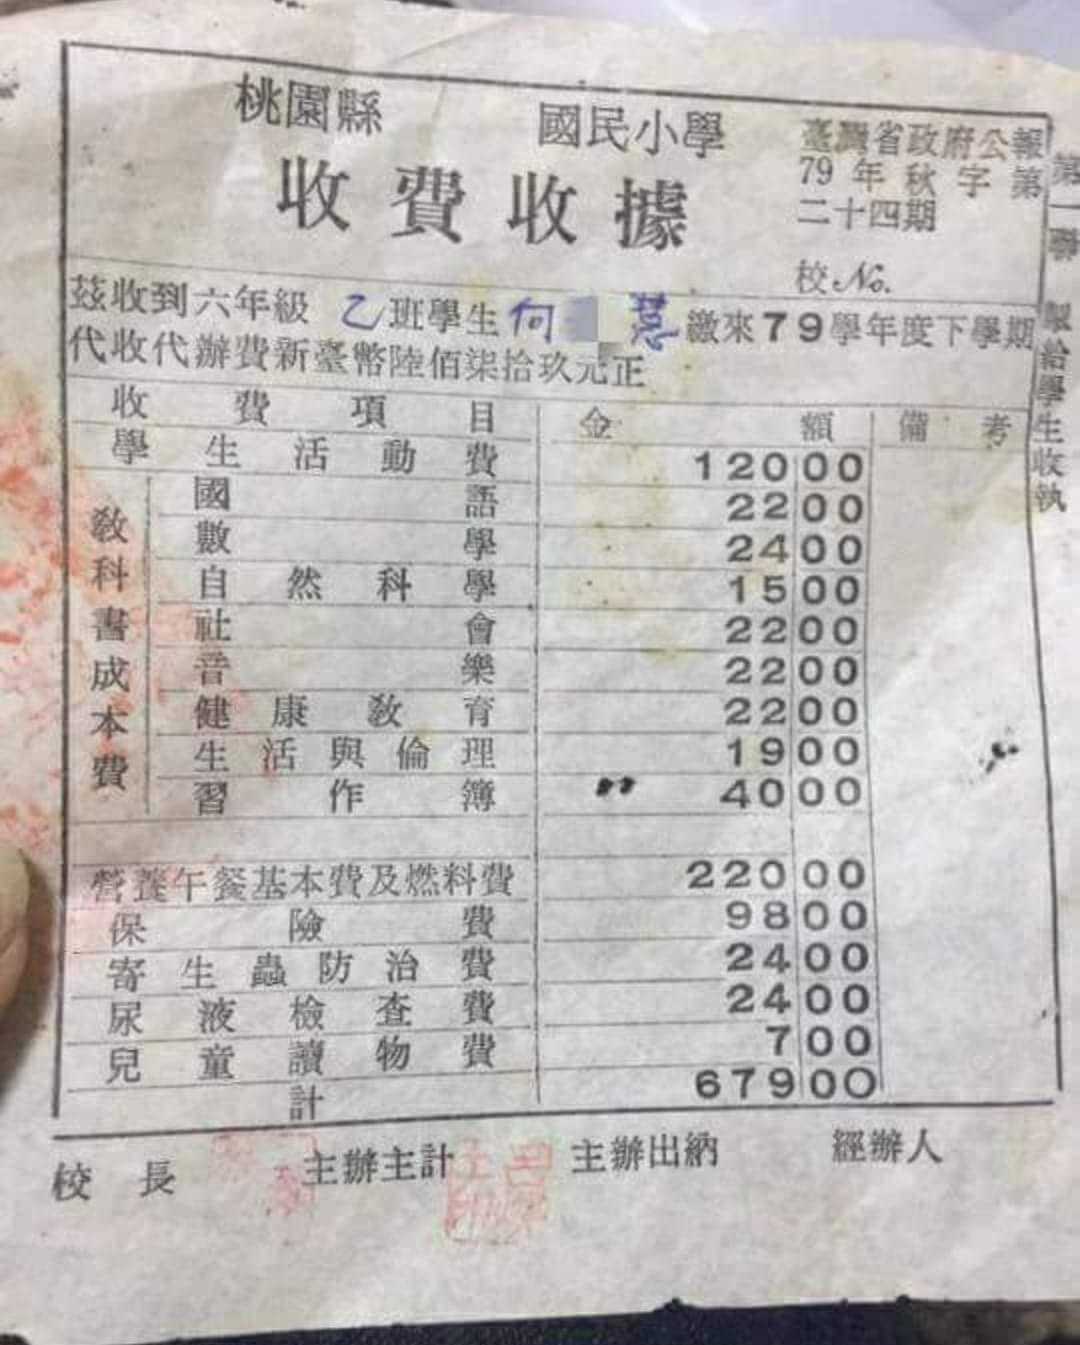 桃園縣 國民小學
收費收據
臺灣省政府公報
79年秋字第
二十四期
校No.
第一聯 製給學生收執
茲收到六年級 乙班學生何 慧 繳來79學年度下學期
代收代辦費新臺幣陸佰柒拾玖元正
收費項目 金額 備考
學生活動費 120 00
教科書成本費
國語 22 00
數學 24 00
自然科學 15 00
社會 22 00
音樂 22 00
健康教育 22 00
生活與倫理 19 00
習作簿 40 00
營養午餐基本費及燃料費 220 00
保險費 98 00
寄生蟲防治費 24 00
尿液檢查費 24 00
兒童讀物費 7 00
計 679 00
校長 主辦主計 主辦出納 經辦人